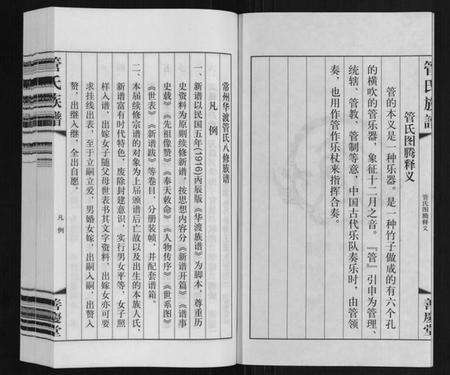 管氏族譜
管氏图腾释义
善慶堂
管氏图腾释义
管的本义是，一种乐器。是一种竹子做成的有六个孔
的横吹的管乐器，象征十二月之音。『管』引申为管理、
统辖、管教、管制等意，中国古代乐队奏乐时，由管领
奏，也用作管作乐杖来指挥合奏。
常州华渡管氏八修族谱
凡例
一、新谱以民国五年(1916)丙辰版《华渡族谱》为脚本，尊重历
史资料为原则续修新谱，按思想内容分《新谱开篇》《谱事
史载》《先祖像赞》《奉天敕命》《人物传序》《世系图》
《世表》《新谱跋》等卷目，分册装帧，并配套谱箱。
二、本届续修宗谱的对象为上届颁谱后亡故以及出生的本族人氏，
新谱富有时代特色，废除封建意识，实行男女平等，女子照
样入谱，出嫁女子随父母世表书其文字资料，出嫁女亦可要
求挂线出表，至于立嗣立爱，男婚女嫁，出嗣入嗣，出赘入
赘，出继入继，全出自愿。
管氏族譜
凡例
善慶堂